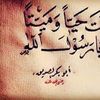 طبت حَيّاً وَمَيِّتاً
يا رَسُولَ الله
أبو بكر الصديق